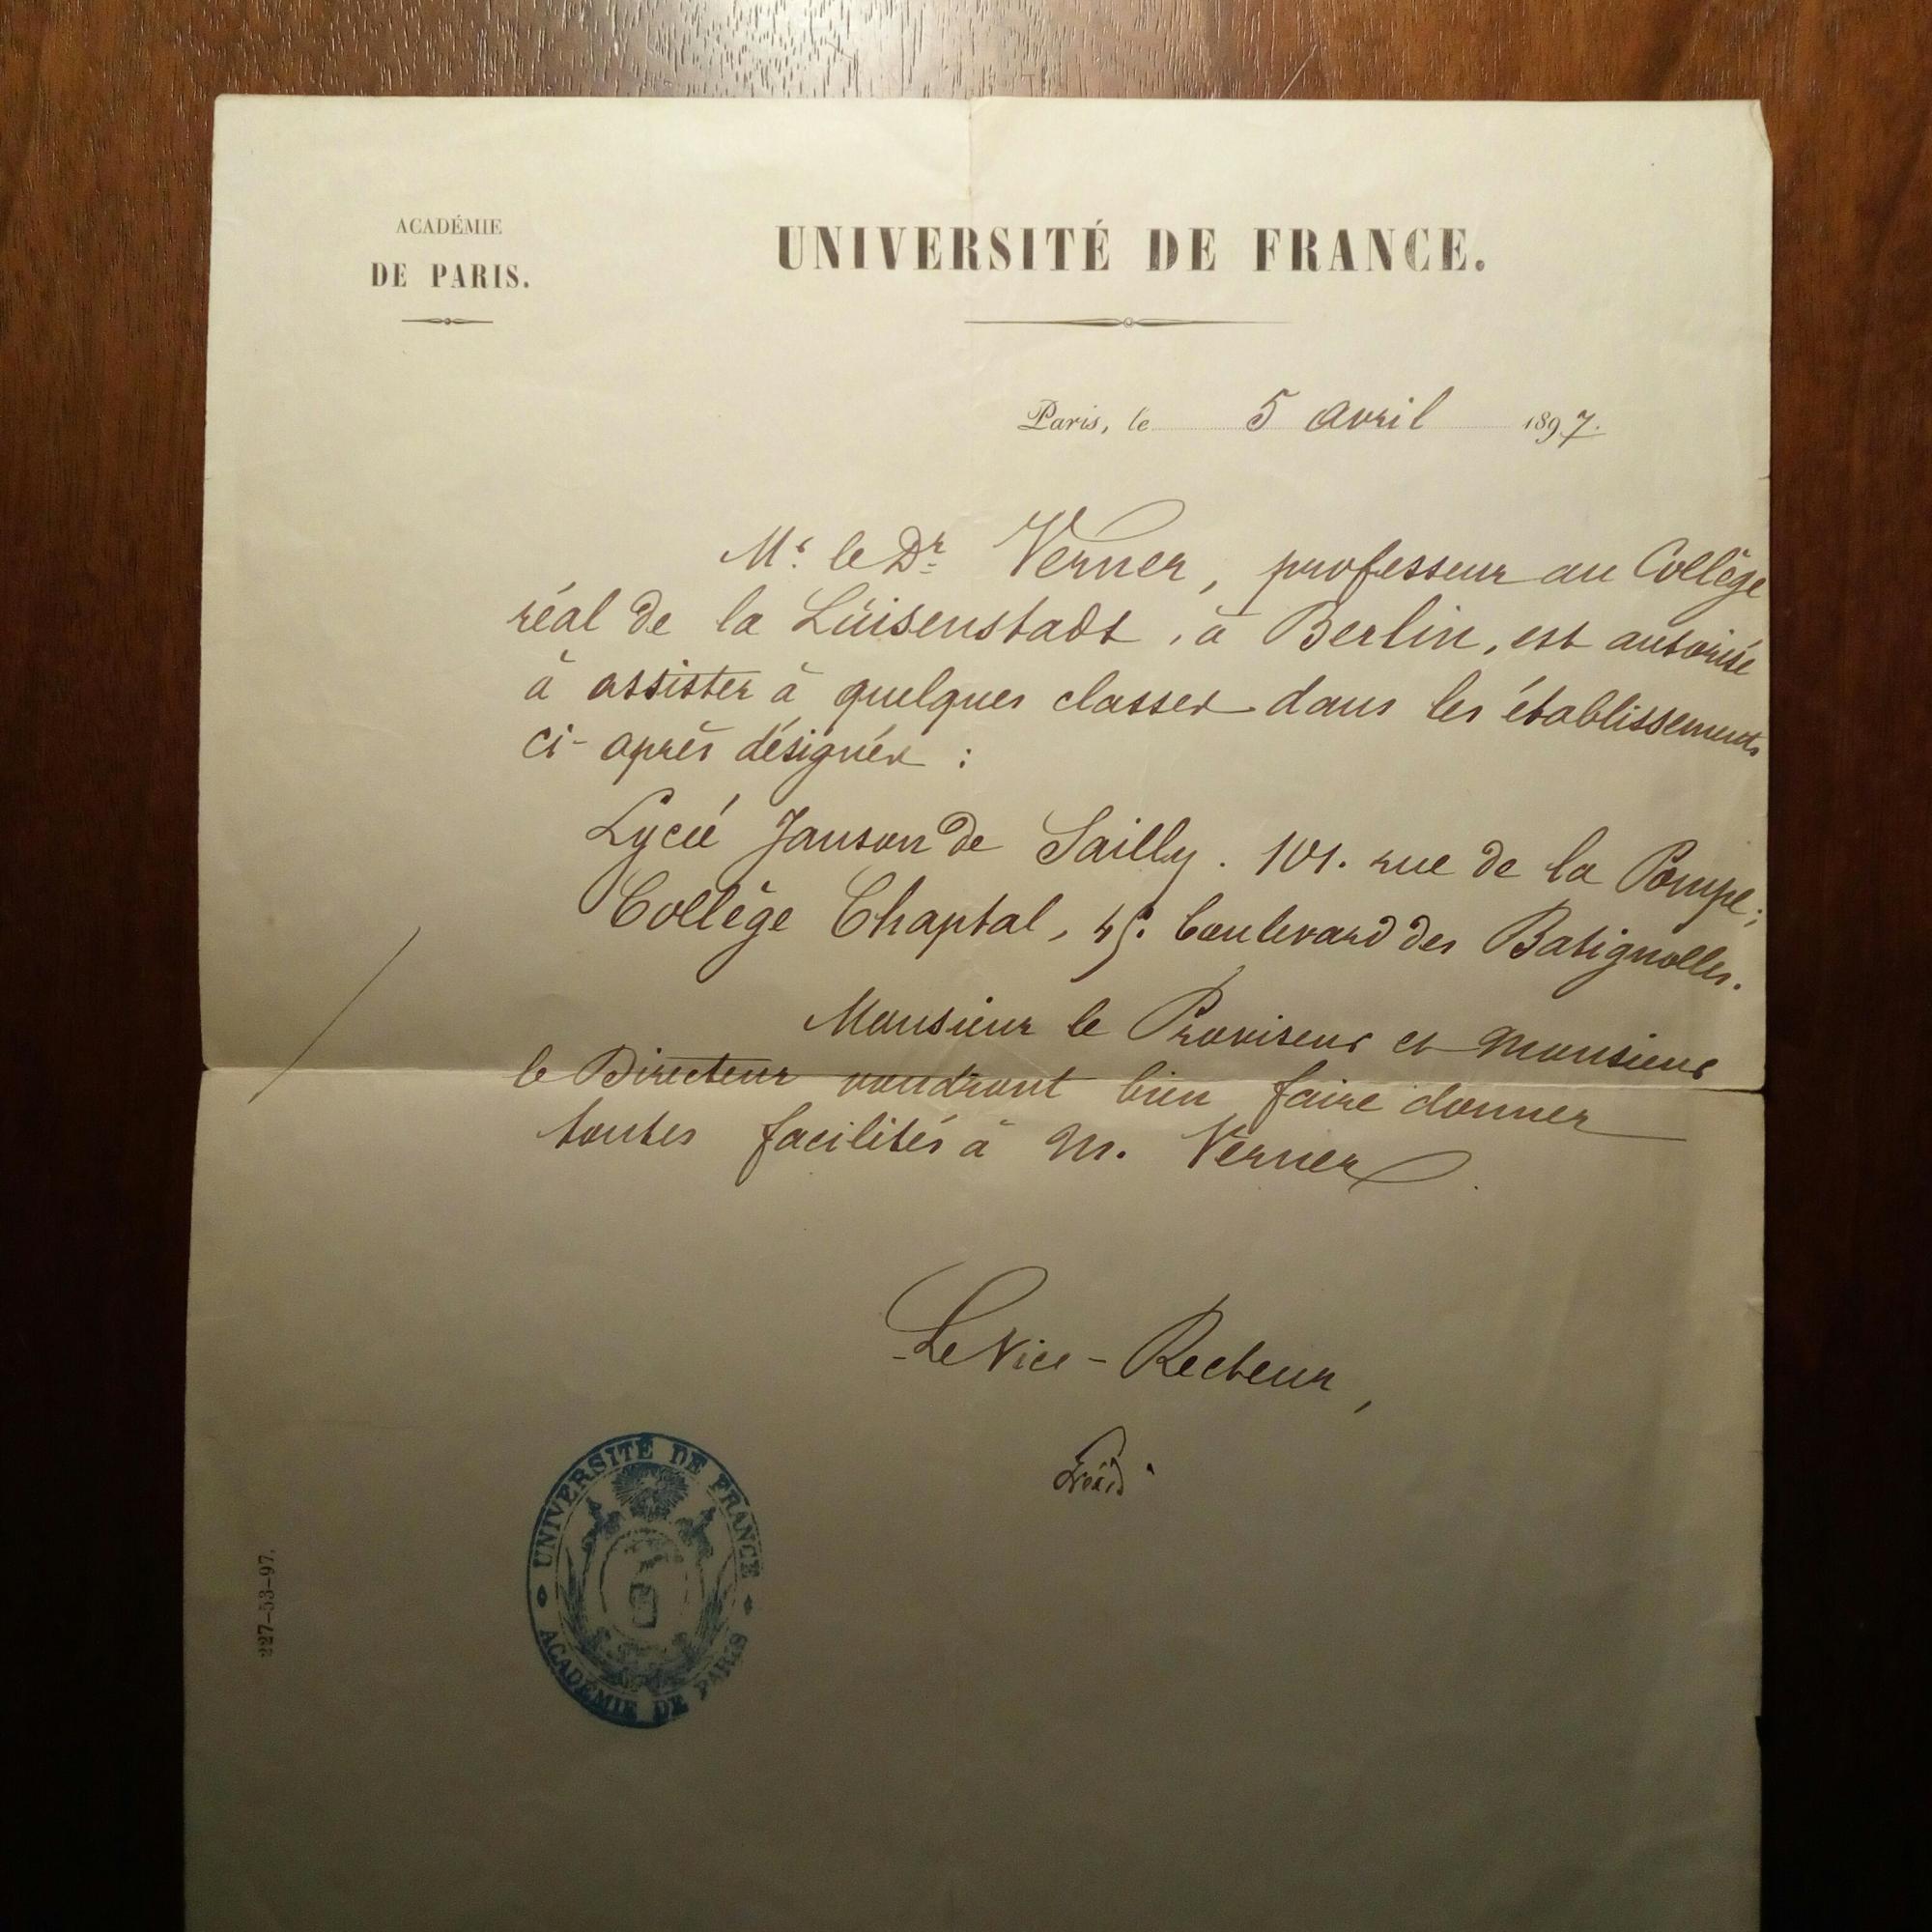 ACADÉMIE
DE PARIS.
UNIVERSITÉ DE FRANCE.
Paris, le 5 avril 1897.
Mr. le Dr Verner, professeur au Collège
réal de la Lüisenstadt, à Berlin, est autorisé
à assister à quelques classes dans les établissements
ci-après désignés :
Lycée Janson de Sailly. 101. rue de la Pompe;
Collège Chaptal, 45. boulevard des Batignolles.
Monsieur le Proviseur et Monsieur
le Directeur voudront bien faire donner
toutes facilités à M. Verner.
Le Vice-Recteur,
Gréard
UNIVERSITÉ DE FRANCE
ACADÉMIE DE PARIS
227-53-97.